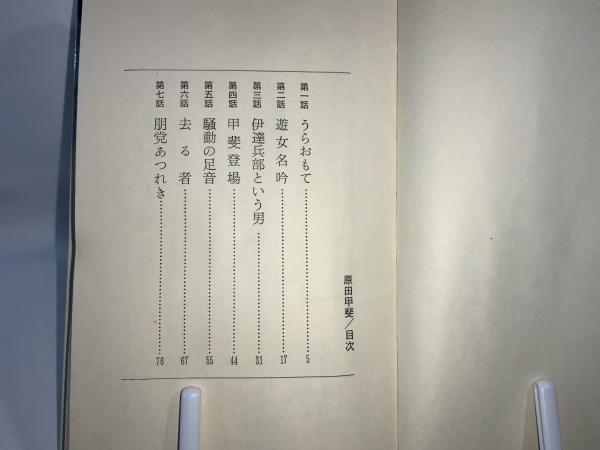 原田甲斐/目次
第一話 うらおもて……5
第二話 遊女名吟……17
第三話 伊達兵部という男……31
第四話 甲斐登場……44
第五話 騒動の足音……55
第六話 去る者……67
第七話 朋党あつれき……76